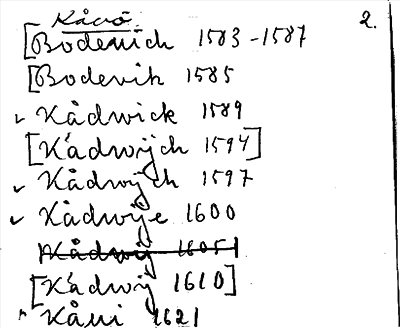 Kåvö. 2.
[Bodenich 1583-1587
[Bodevik 1585
Kådwick 1589
[Kådwijch 1594]
Kådwijch 1597
Kådwije 1600
Kådwij 1605
[Kådwij 1610]
Kåvi 1621